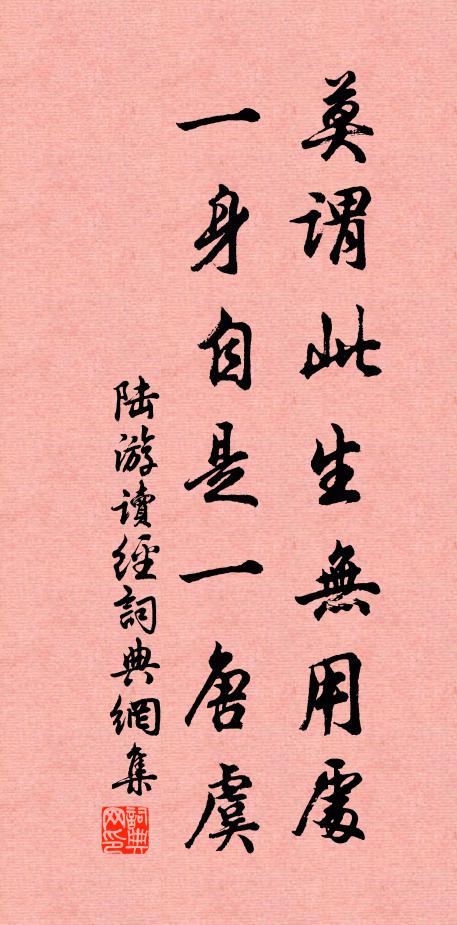 莫謂此生無用處
一身自是一唐虞
陸游讀經詞典網集
詞典網印